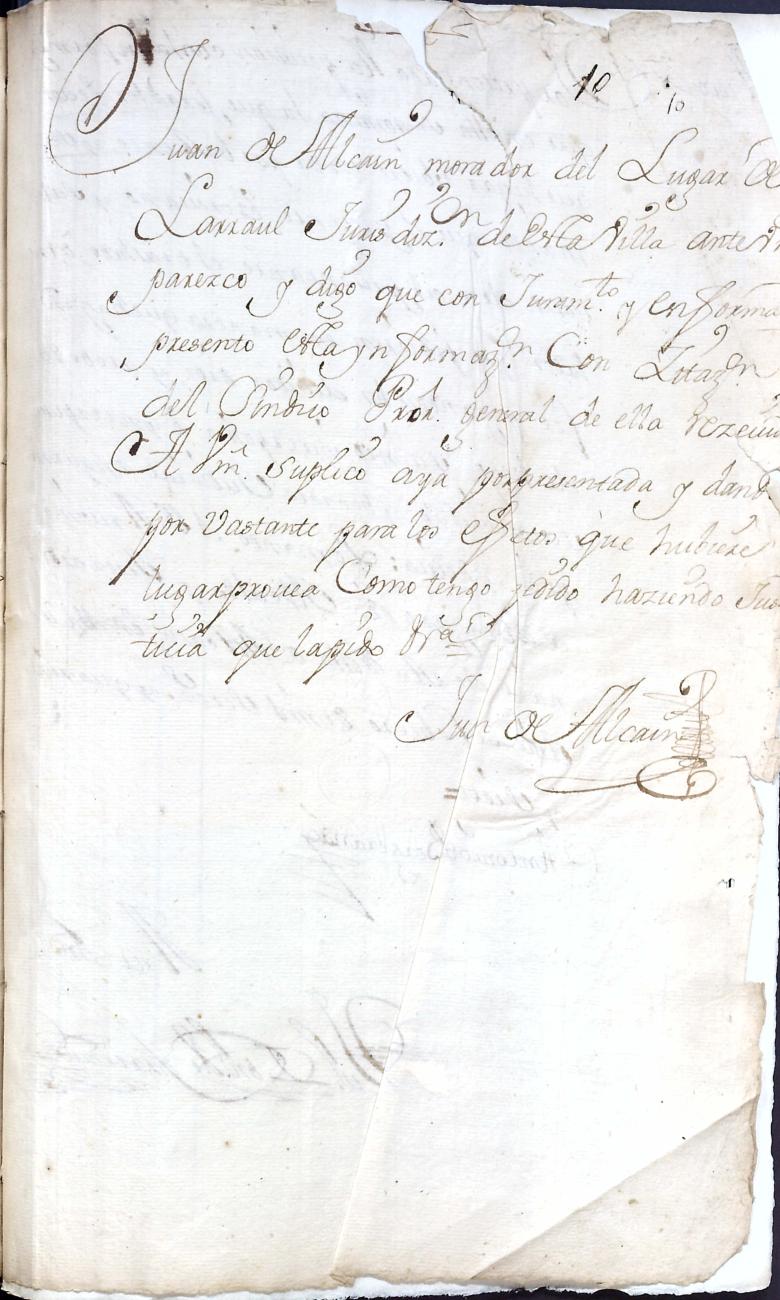 10 10
Juan de Alcain morador del Lugar de
Larraul Jurisdiz.on de esta Villa ante V
parezco y digo que con Juram.to y en forma
presento esta ynformaz.on Con Zitaz.on
del Sindico Pror. general de ella rezeui
A Vm. suplico aya por presentada y dand
por vastante para los efetos que hubiere
lugar prouea Como tengo pedido haziendo Jus
ticia que la pido &ra
Juan de Alcain